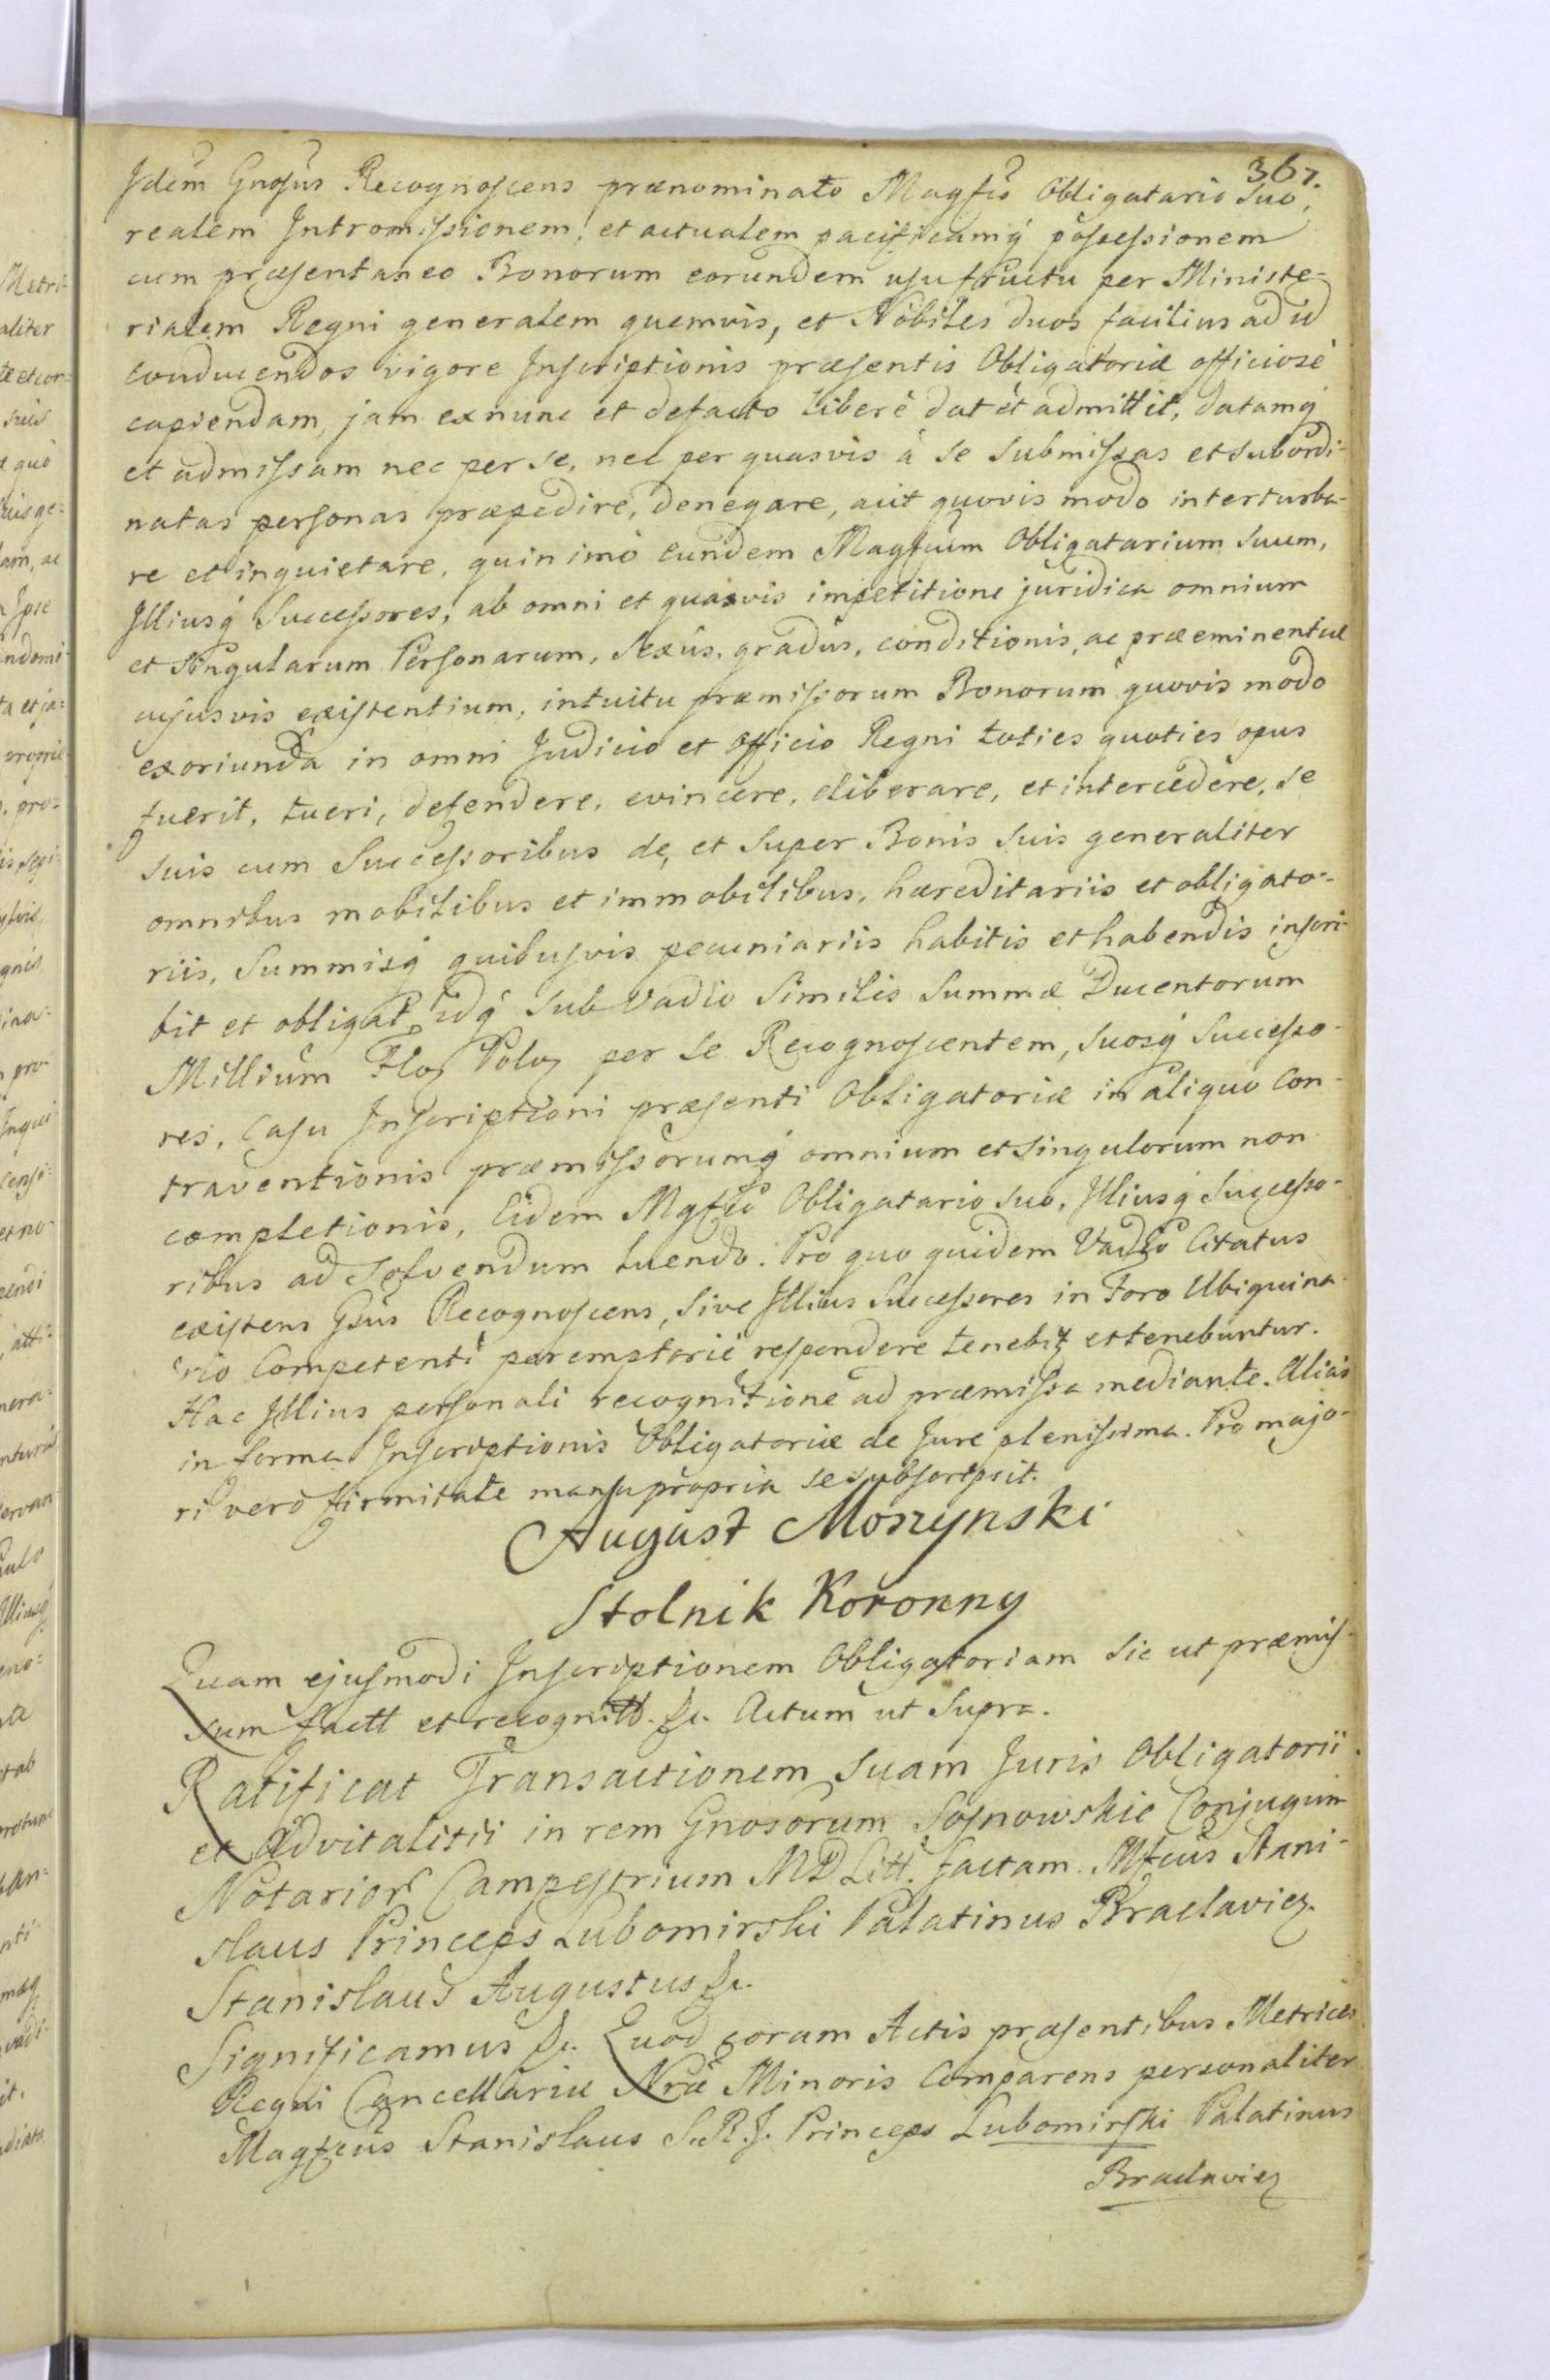 367.
Idem Gnosus Recognoscens prænominato Magfco Obligatario suo,
realem Intromissionem, et actualem pacificamq possessionem
cum præsentaneo Bonorum eorundem usufructu per Ministe-
rialem Regni generalem quemvis, et Nobiles duos facilius ad id
conducendos vigore Inscriptionis præsentis Obligatoriæ officiosè
capiendam, jam exnunc et defacto liberè dat et admittit, datamq
et admissam nec per se, nec per quasvis à se submissas et subordi-
natas personas præpedire, denegare, aut quovis modo interturba-
re et inquietare, quin imò eundem Magfcum Obligatarium suum,
Illiusq Successores, ab omni et quasvis impetitione juridica omnium
et singularum Personarum, sexûs, gradûs, conditionis, ac præeminentiæ
cujusvis existentium, intuitu præmissorum Bonorum quovis modo
exoriunda in omni Judicio et Officio Regni toties quoties opus
fuerit, tueri, defendere, evincere, eliberare, et intercedere, se
suis cum Successoribus de, et super Bonis suis generaliter
omnibus mobilibus et immobilibus, hæreditariis et obligato-
riis, Summisq quibusvis pecuniariis habitis et habendis inscri-
bit et obligat, idq sub Vadio similis summæ Ducentorum
Millium Flo Polo per se Recognoscentem, suosq Successo-
res, Casu Inscriptioni præsenti Obligatoriæ in aliquo Con-
traventionis præmissorumq omnium et singulorum non
completionis, Eidem Mgfco Obligatario suo, Illiusq Successo-
ribus ad solvendum luendo. Pro quo quidem Vadio Citatus
existens Gsus Recognoscens, sive Illius Successores in Foro Ubiquina-
rio Competenti peremptorië respondere tenebit et tenebuntur.
Hac Illius personali recognitione ad præmissa mediante. Alias
in forma Inscriptionis Obligatoriæ de Jure plenissima. Pro majo-
ri verò firmitate manu propria se subscripsit.
August Moszynski
Stolnik Koronny
Quam ejusmodi Inscriptionem Obligatoriam sic ut præmis-
sum factt et recognitt. &c. Actum ut supra.
Ratificat Transactionem suam Juris Obligatorii
et Advitalitii in rem Gnosorum Sosnowskie Conjugum
Notarior Campestrium MD Litt. factam. Mfcus Stani-
slaus Princeps Lubomirski Palatinus Braclavien
Stanislaus Augustus &c.
Significamus &c. Quod coram Actis præsentibus Metrices
Regni Cancellariæ Nræ Minoris Comparens personaliter
Magfcus Stanislaus S.R.I. Princeps Lubomirski Palatinus
Braclavien